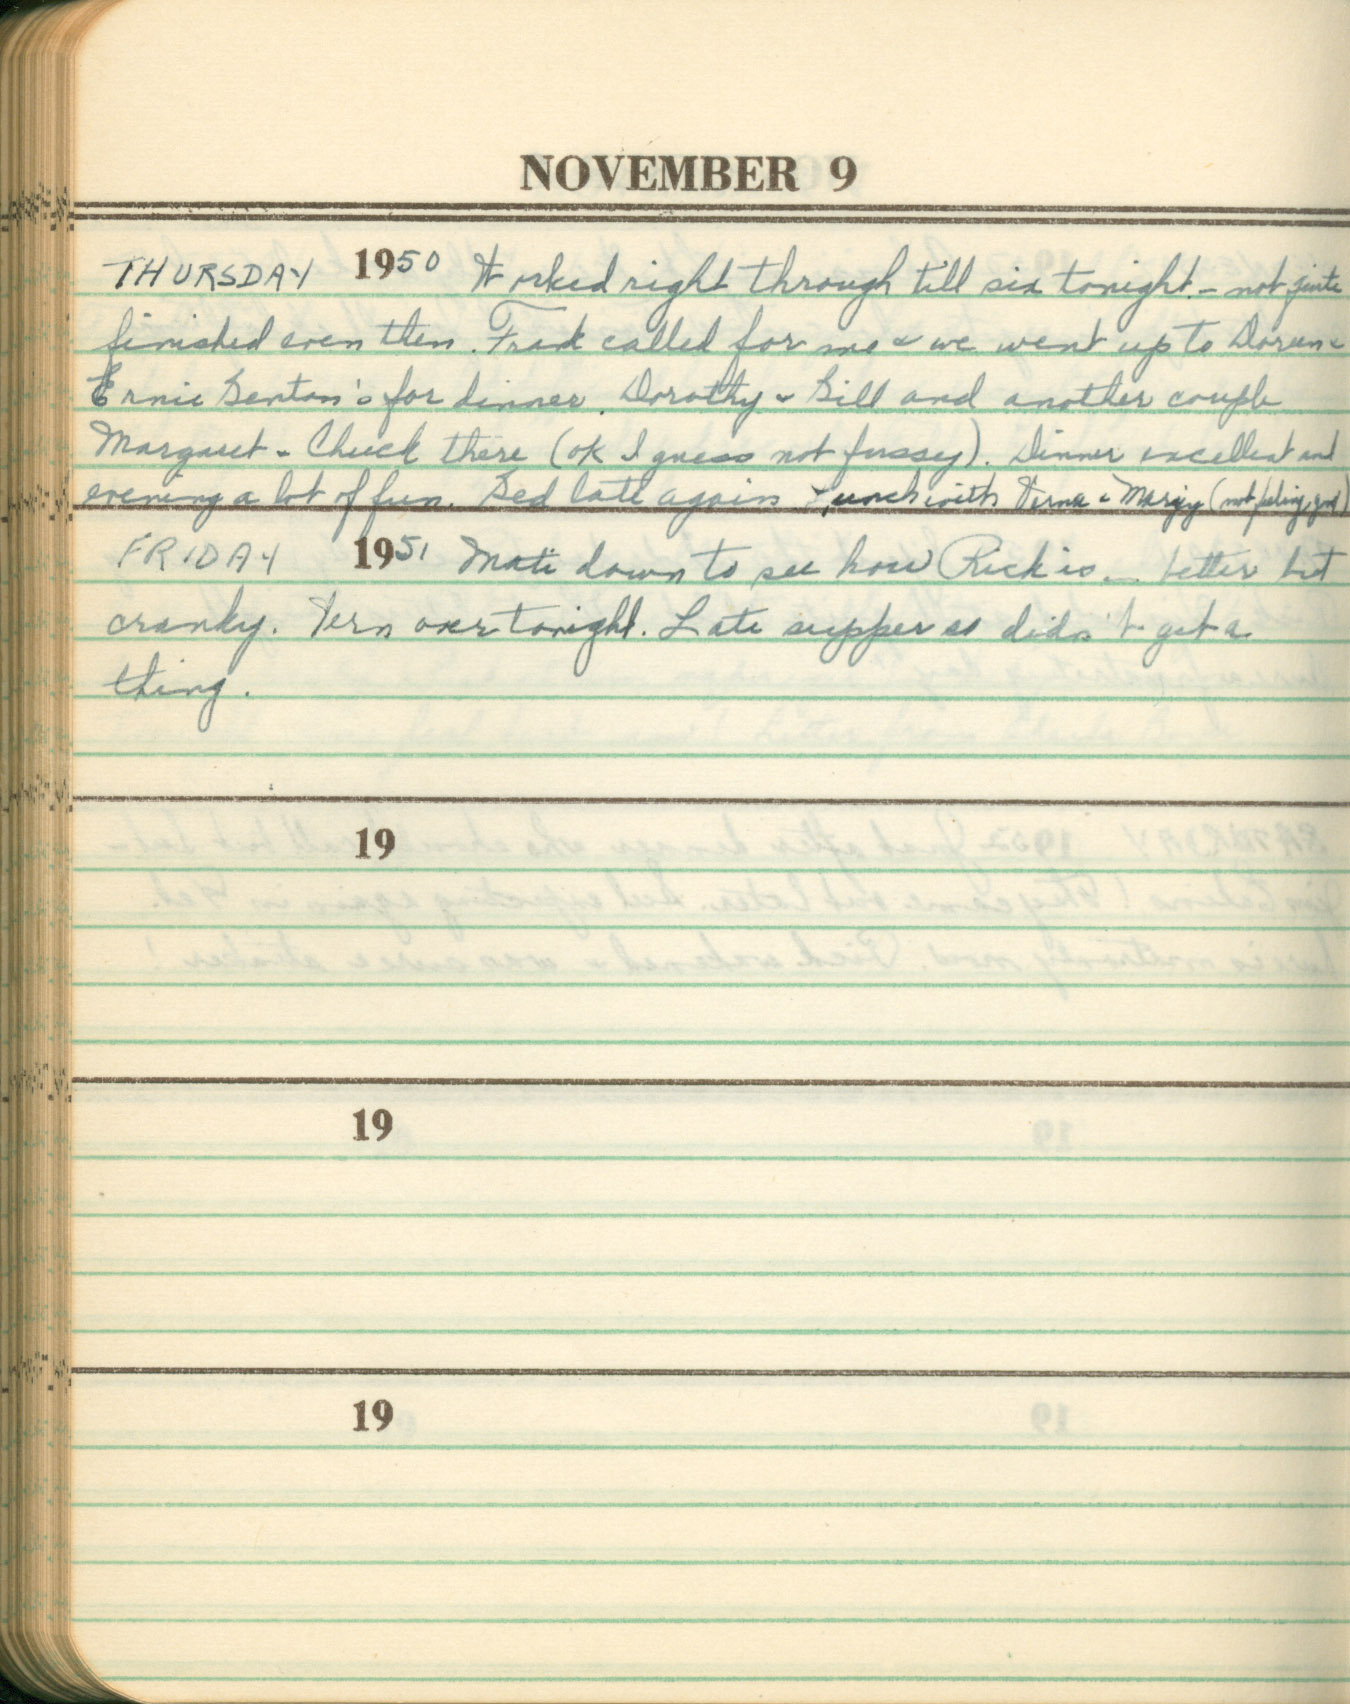 NOVEMBER 9
THURSDAY 1950 Worked right through till six tonight - not quite
finished even then. Frank called for me & we went up to Doreen &
Ernie Benton's for dinner. Dorothy & Bill and another couple
Margaret & Chuck there (ok I guess not fussy). Dinner excellent and
evening a lot of fun. Bed late again Lunch with Verna & Margy (not feeling good)
FRIDAY 1951 down to see how Rick is - better but
cranky. Vern over tonight. Late supper so didn't get a
thing.
19
19
19